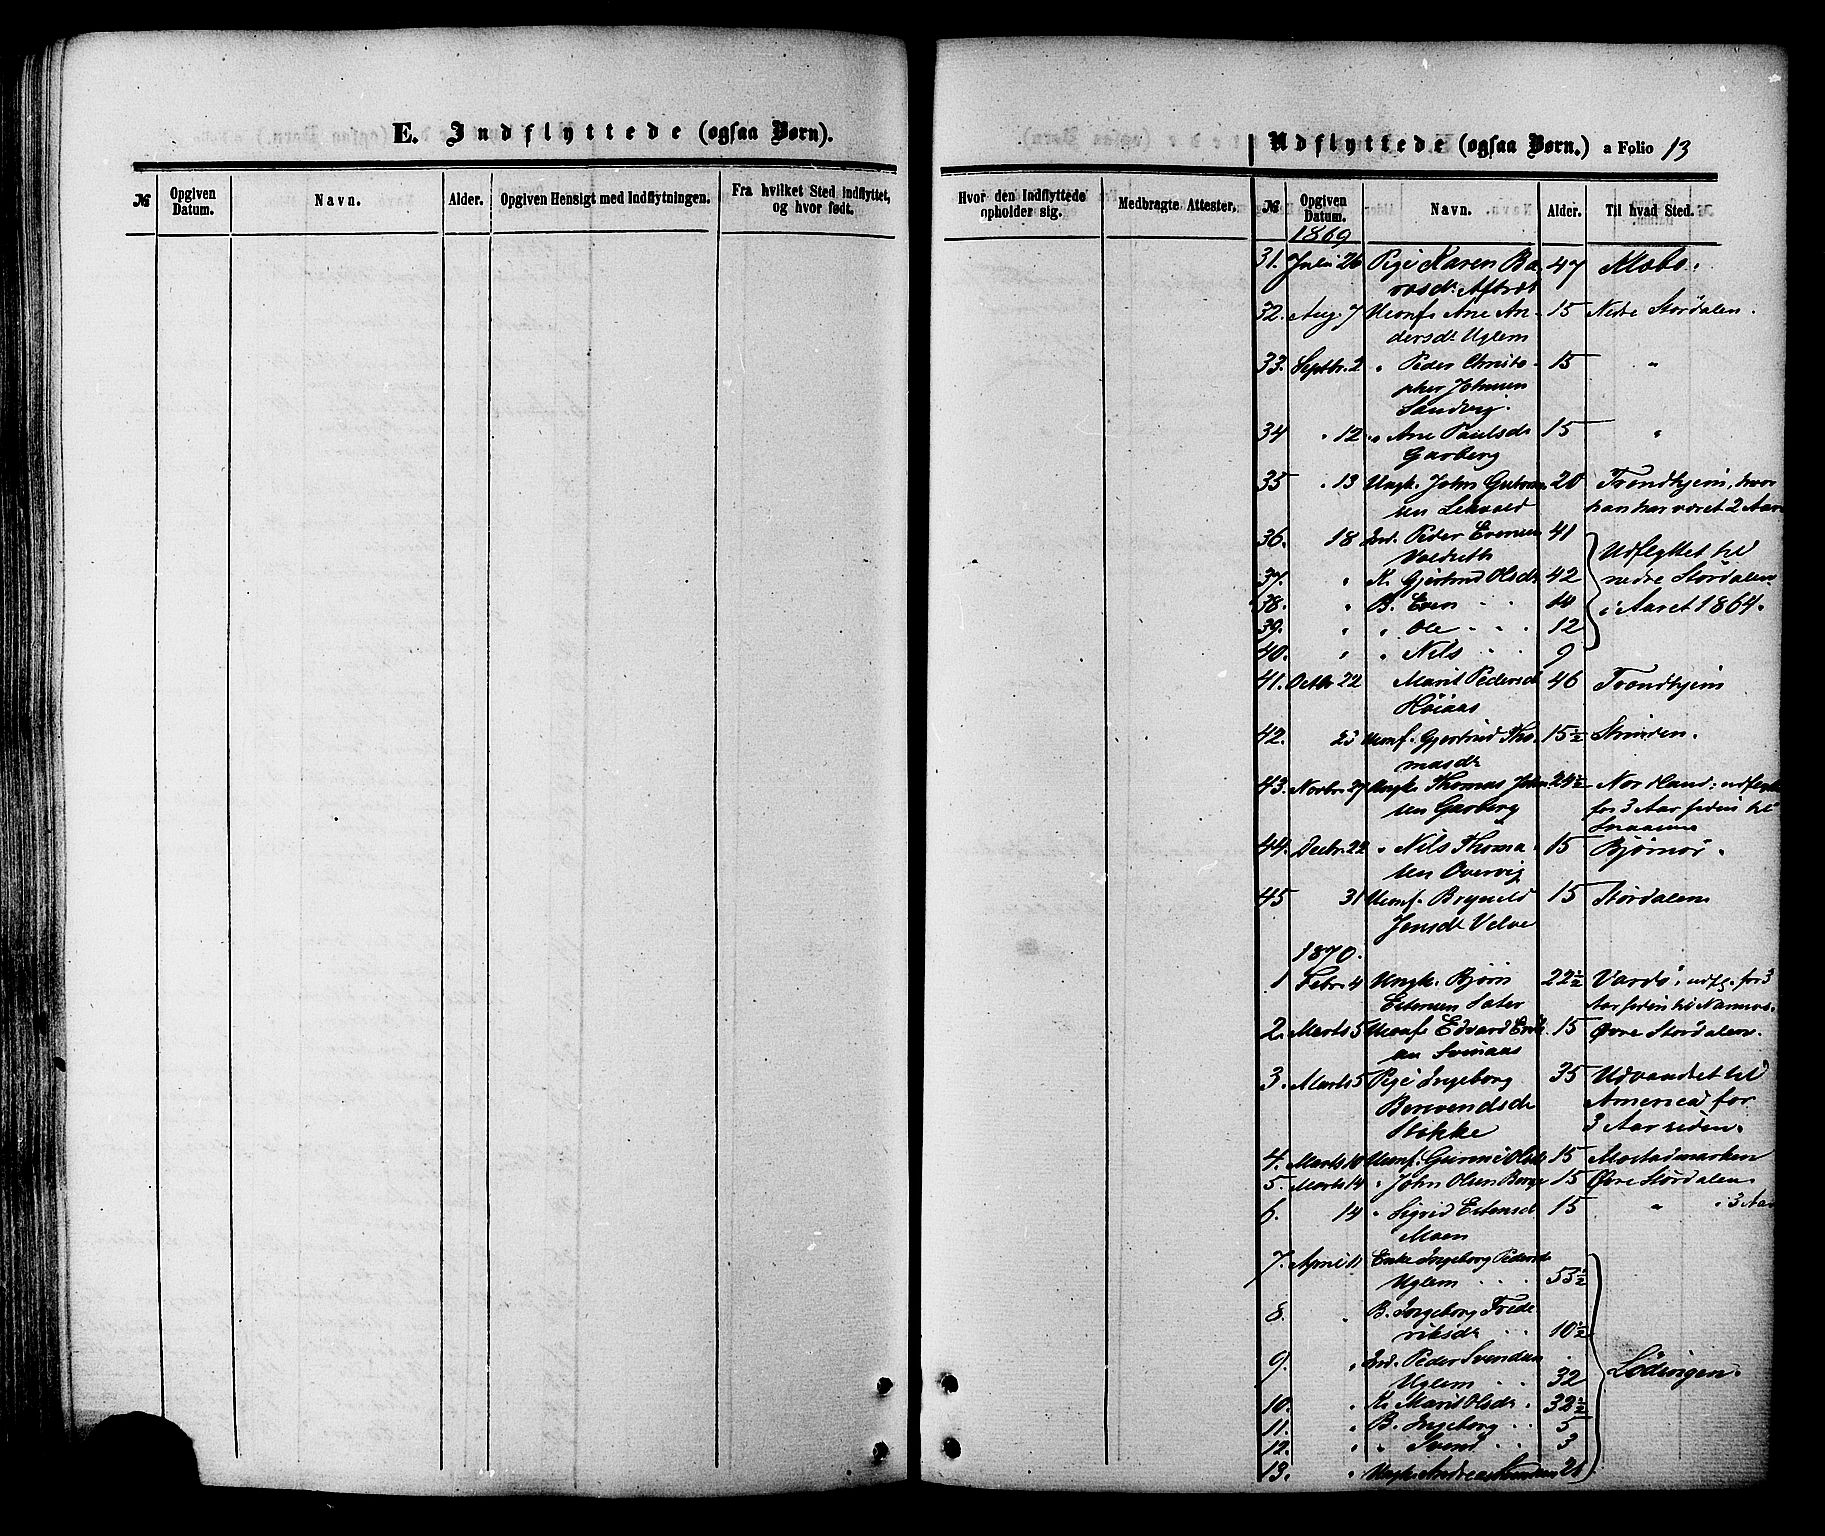 E. Indflyttede (ogsaa Børn).
№ Opgiven Datum. Navn. Alder. Opgiven Hensigt med Indflytningen. Fra hvilket Sted indflyttet, og hvor født.
Udflyttede (ogsaa Børn.) a Folio 13
Hvor den Indflyttede opholder sig. Medbragte Attester. № Opgiven Datum. Navn. Alder. Til hvad Sted.
1869
31. Juli 26 Pige Karen Ba- 47
rosdr.
32. Aug. 7 Ukonf. Ane An- 15 Nedre Størdalen.
dersdr Uglem
33. Septbr. 2 " Peder Christo- 15 "
pher Johnsen
Sandvig.
34 " 12 " Ane Paulsdr 15 "
Garberg
35 " 13 Ungk. John 20 Trondhjem, hvor
sen han har været 2 Aar
36. 18 Ind. Peder Evensen 41 Udflyttet til
37. " K. Gjertrud Olsdr 42 nedre Størdalen
38. " B. Even 14 i Aaret 1864.
39. " " Ole 12
40. " " Nils 9
41. Octbr 22 Marit Pedersdr 46 Trondhjem
Høiaas
42. 23 Ukonf. Gjertrud Tho- 15½ Strinden.
masdr
43. Novbr. 27 Ungk. Thomas John 24½ Nordland; udflyttet
sen Garberg for 3 Aar siden til
Snaasen
44. Decbr. 22 " Nils Thoma- 15 Bjørnør.
sen Overvig
45 31 Ukonf. Brynild 15 Størdalen
Jensdr Velve
1870.
1 Febr. 4 Ungk. Bjørn 22½ Vardø; udfl. for 3
Estensen Sæter Aar siden til Namsos.
2. Marts 5 Ukonf. Edvard Erik 15 Øvre Størdalen.
sen Svinaas
3. Marts 5 Pige Ingeborg 35 Udvandret til
Berevendsdr America for
Stokke 3 Aar siden.
4. Marts 10 Ukonf. Guruni Olsdr 15 Mostadmarken
5. Marts 14 " John Olsen Borge 15 Øvre Størdalen
6. 14 " Sigrid Estensdr 15 " i 3 Aar
Moen
7. April 11 Enke Ingeborg Pedersdr
Uglem 53½
8. " B. Ingeborg Frede-
riksdr 10½
9. " Ind. Peder Svendsen
Uglem 32 Lødingen.
10. " K. Marit Olsdr 32½
11. " B. Ingeborg 5
12. " " Svend 3
13. " Ungk. Andreas Svendsen 21